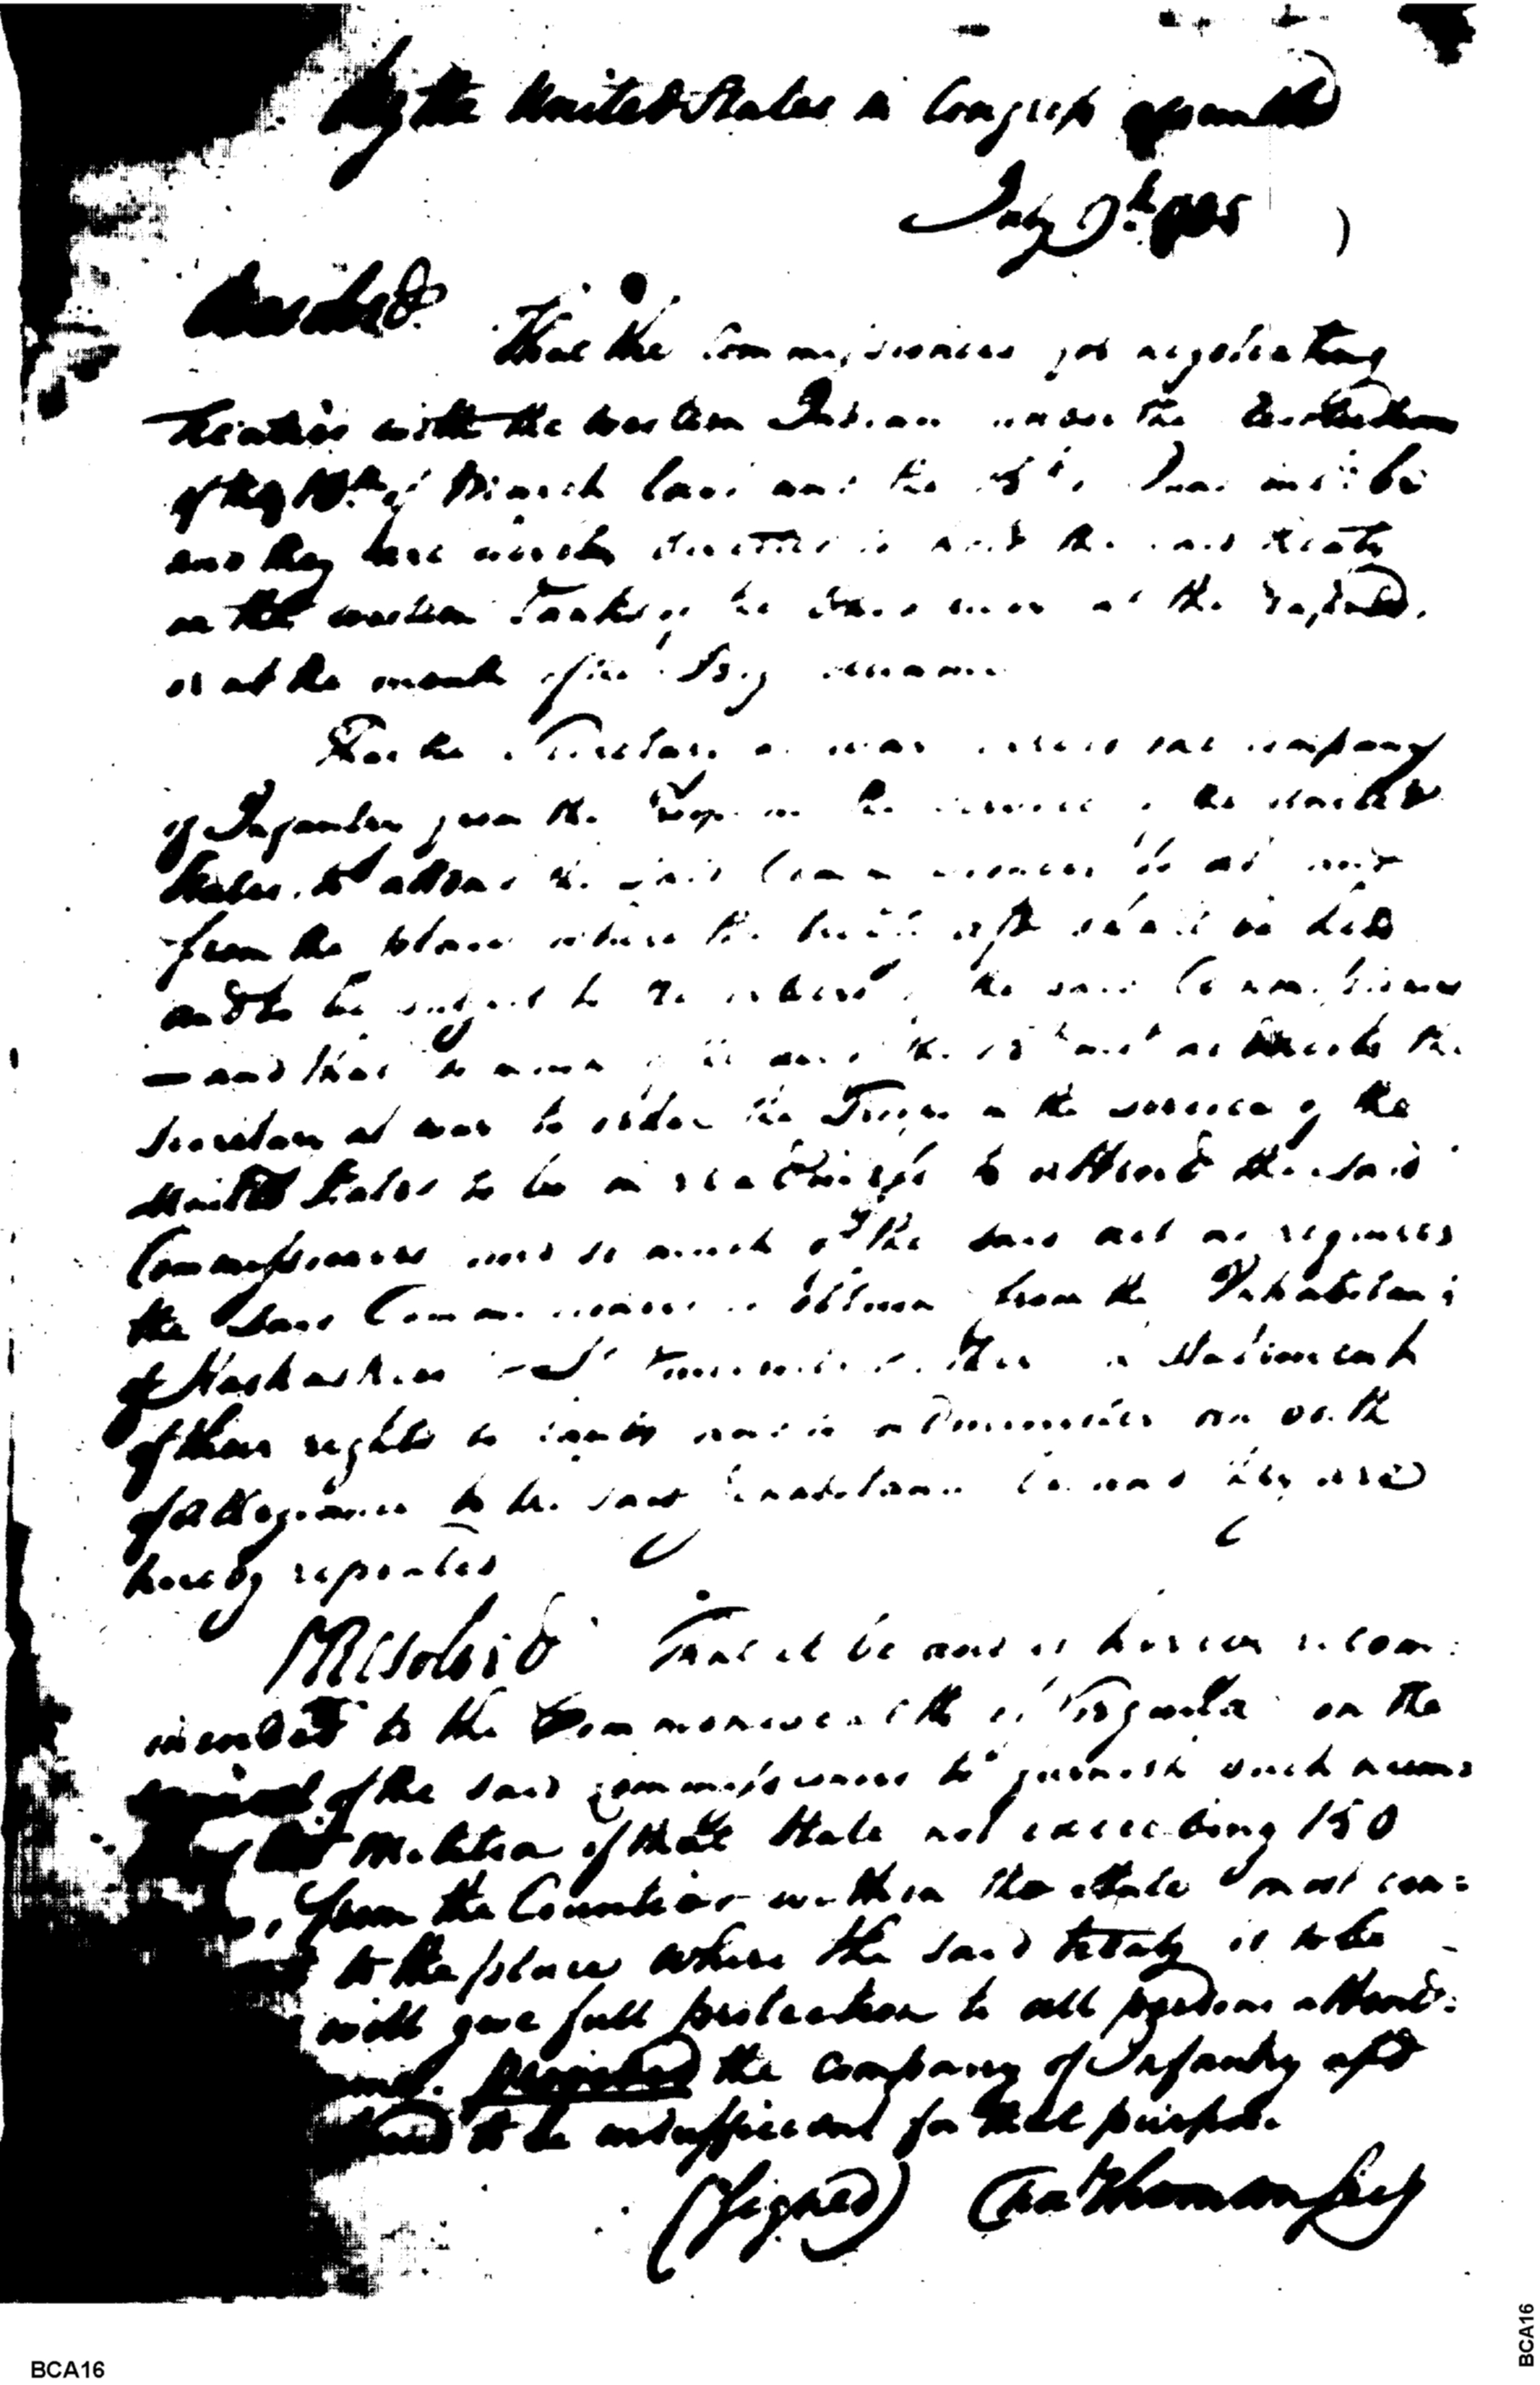 By the United States in Congress assembled
July 9th 1785
Resolved That the Commissioners for negotiating
treaties with the western Indians under the
of the of March last and the June inst: be
and they are hereby directed to hold the said treaty
on the western banks of the Ohio river at the Rapids,
or at the mouth of the big Miami
That the Secretary at war order one company
of Infantry from the Troops in the service of the United
States, to attend the said Commissioners to and
from the place where the treaty afsd shall be held
and to be subject to the orders of the said Commissioners
— and that so much of the as directs the
Secretary at war to order the Troops in the service of the
United States to be in readiness to attend the said
Commissioners and so much of the said act as requires
the said Commissioners to obtain from the Inhabitants
of Kaskaskies and a Statement
of their rights to lands and to administer an oath
of allegiance to the said Inhabitants be and they are
hereby repealed
Resolved That it be and is hereby recom:
mended to the Commonwealth of Virginia on the
of the said commissioners to furnish such num:
Militia of that State not exceeding 150
from the Counties within the state most con:
to the place where the said treaty is to be
will give full protection to all persons attend:
provided the company of Infantry afsd
to be insufficient for that purpose
(Signed) Cha Thomson Secy
BCA16
BCA16